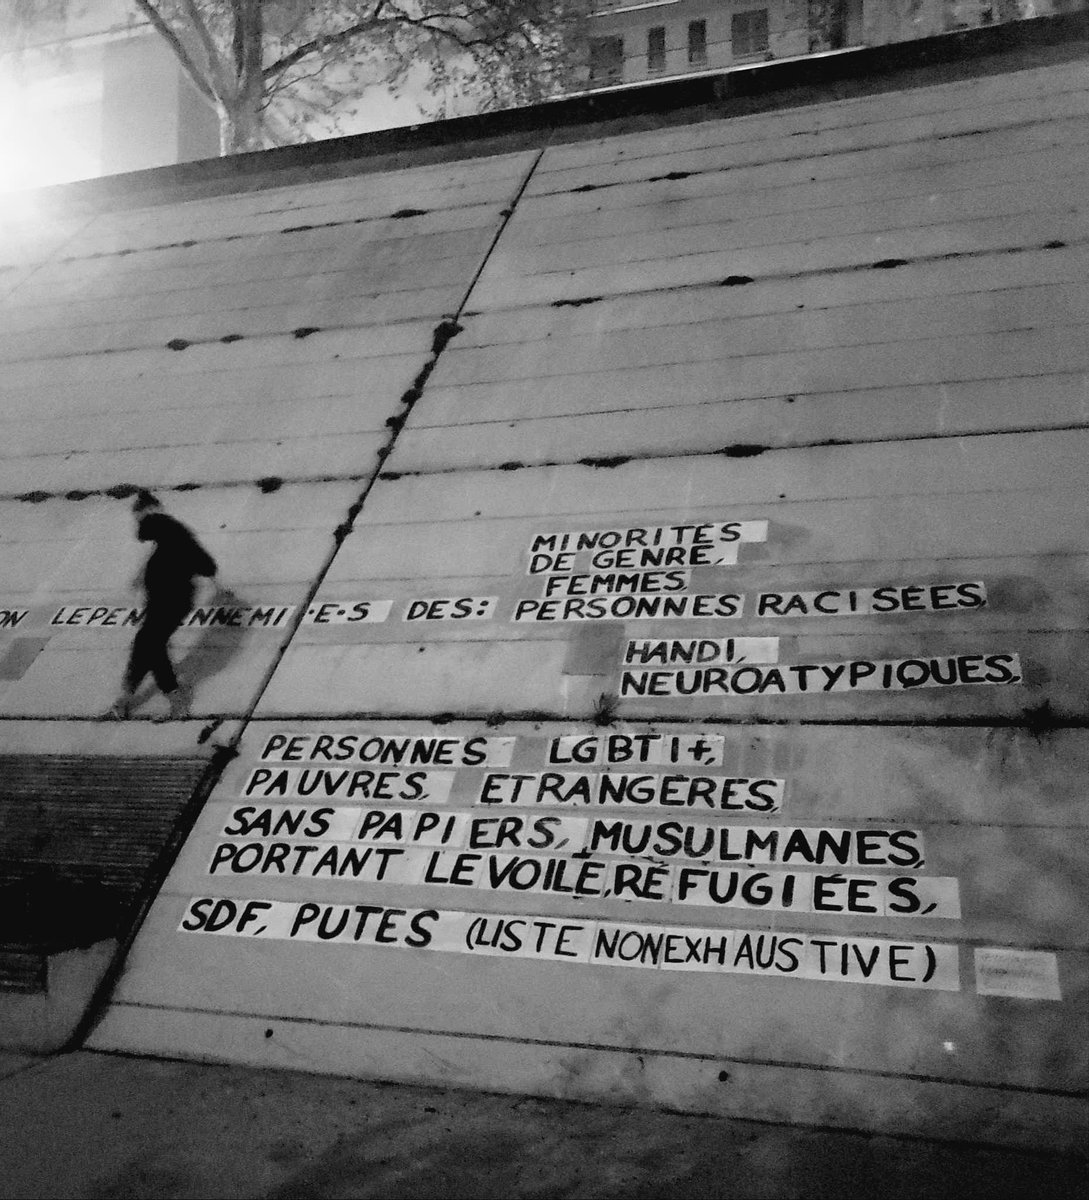 MINORITÉS
DE GENRE,
FEMMES,
ON LEPEN ENNEMI·E·S DES: PERSONNES RACISÉES,
HANDI,
NEUROATYPIQUES,
PERSONNES LGBTI+,
PAUVRES, ETRANGÈRES,
SANS PAPIERS, MUSULMANES,
PORTANT LE VOILE, RÉFUGIÉES,
SDF, PUTES (LISTE NON EXHAUSTIVE)